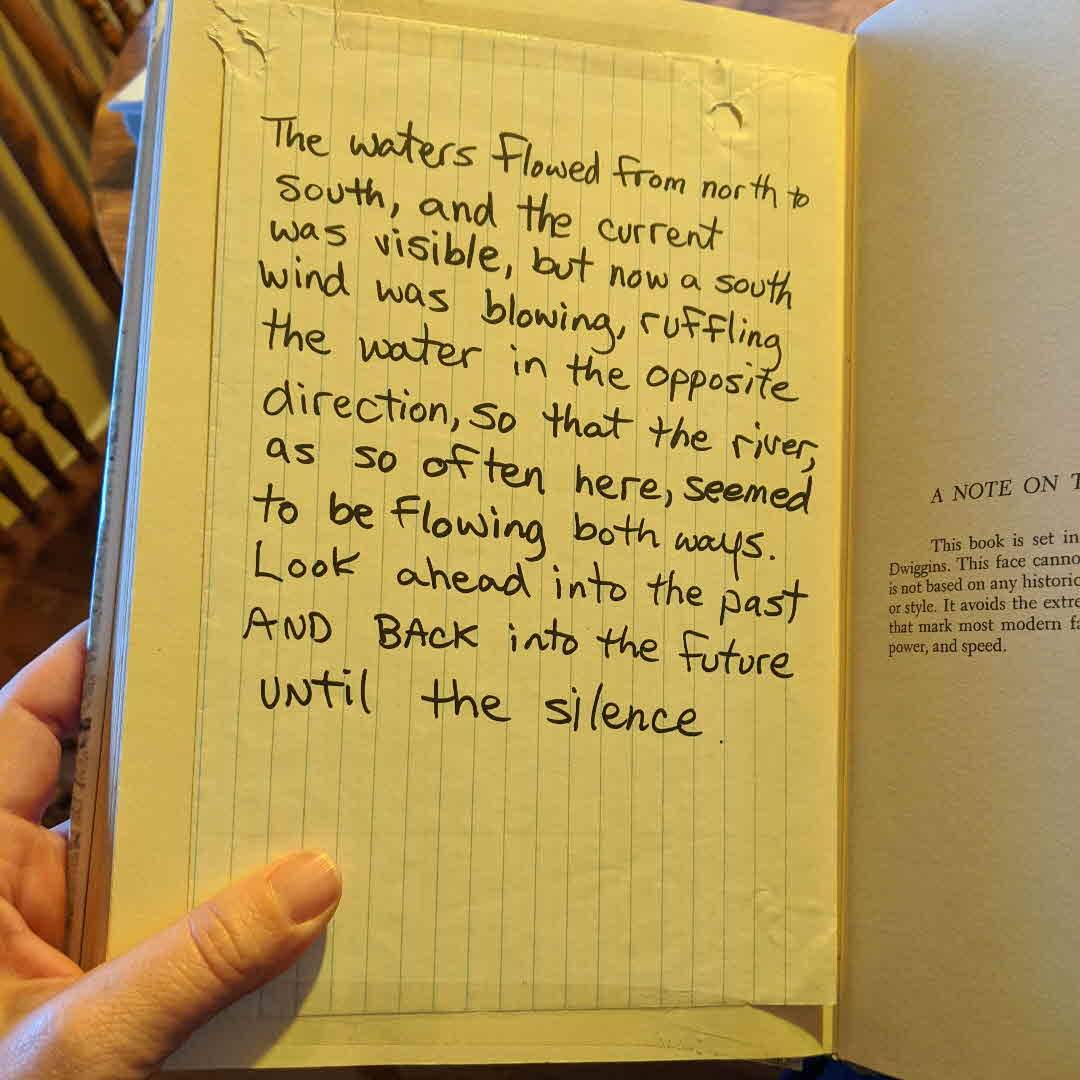 The waters flowed from north to
south, and the current
was visible, but now a south
wind was blowing, ruffling
the water in the opposite
direction, so that the river,
as so often here, seemed
to be flowing both ways.
Look ahead into the past
AND BACK into the future
UNTil the silence.
A NOTE ON T
This book is set in
Dwiggins. This face canno
is not based on any historic
or style. It avoids the extre
that mark most modern fa
power, and speed.